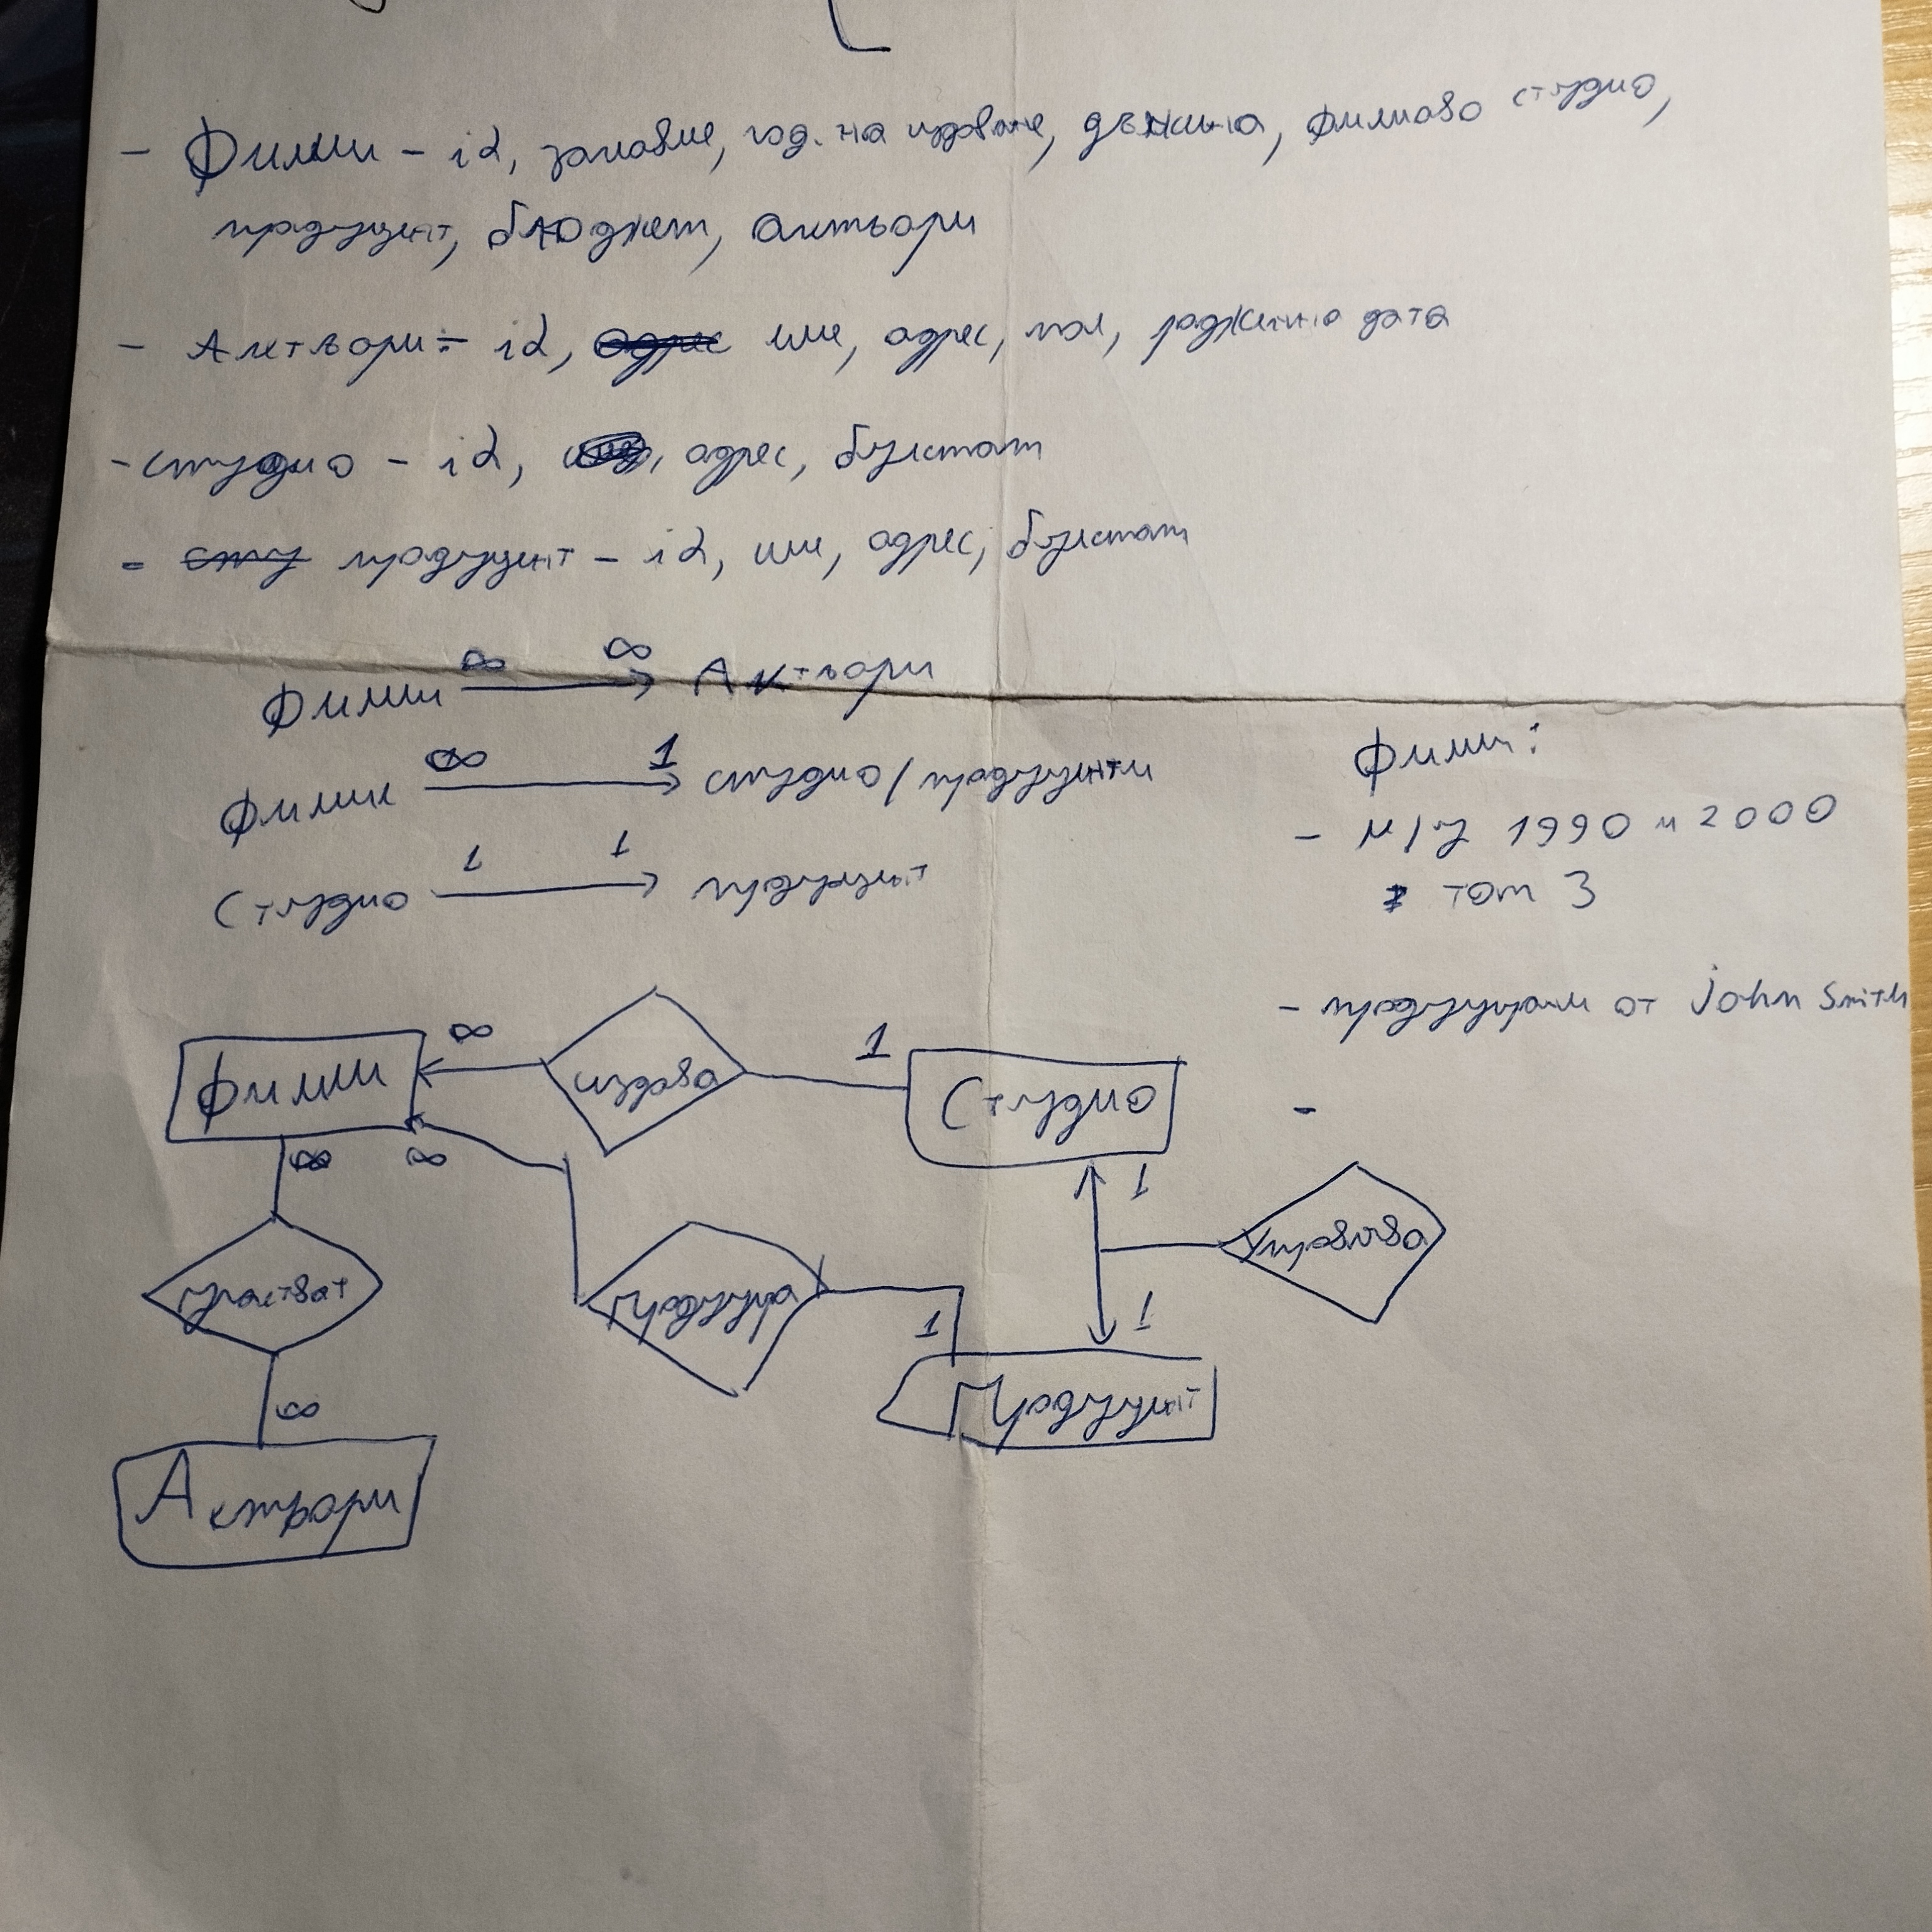 - Филми - id, заглавие, год. на издаване, дължина, филмово студио,
продуцент, бюджет, актьори
- Актьори - id, име, адрес, пол, рождена дата
- студио - id, адрес, булстат
- продуцент - id, име, адрес, булстат
Филми ∞ → ∞ Актьори
Филми ∞ → 1 студио/продуценти
Студио 1 → 1 продуцент
Филми:
- м/у 1990 и 2000
топ 3
- продуцирани от John Smith
-
Филми ∞ издава 1 Студио
∞ ∞ 1
участват продуцира управлява
∞ 1 1
Продуцент
Актьори